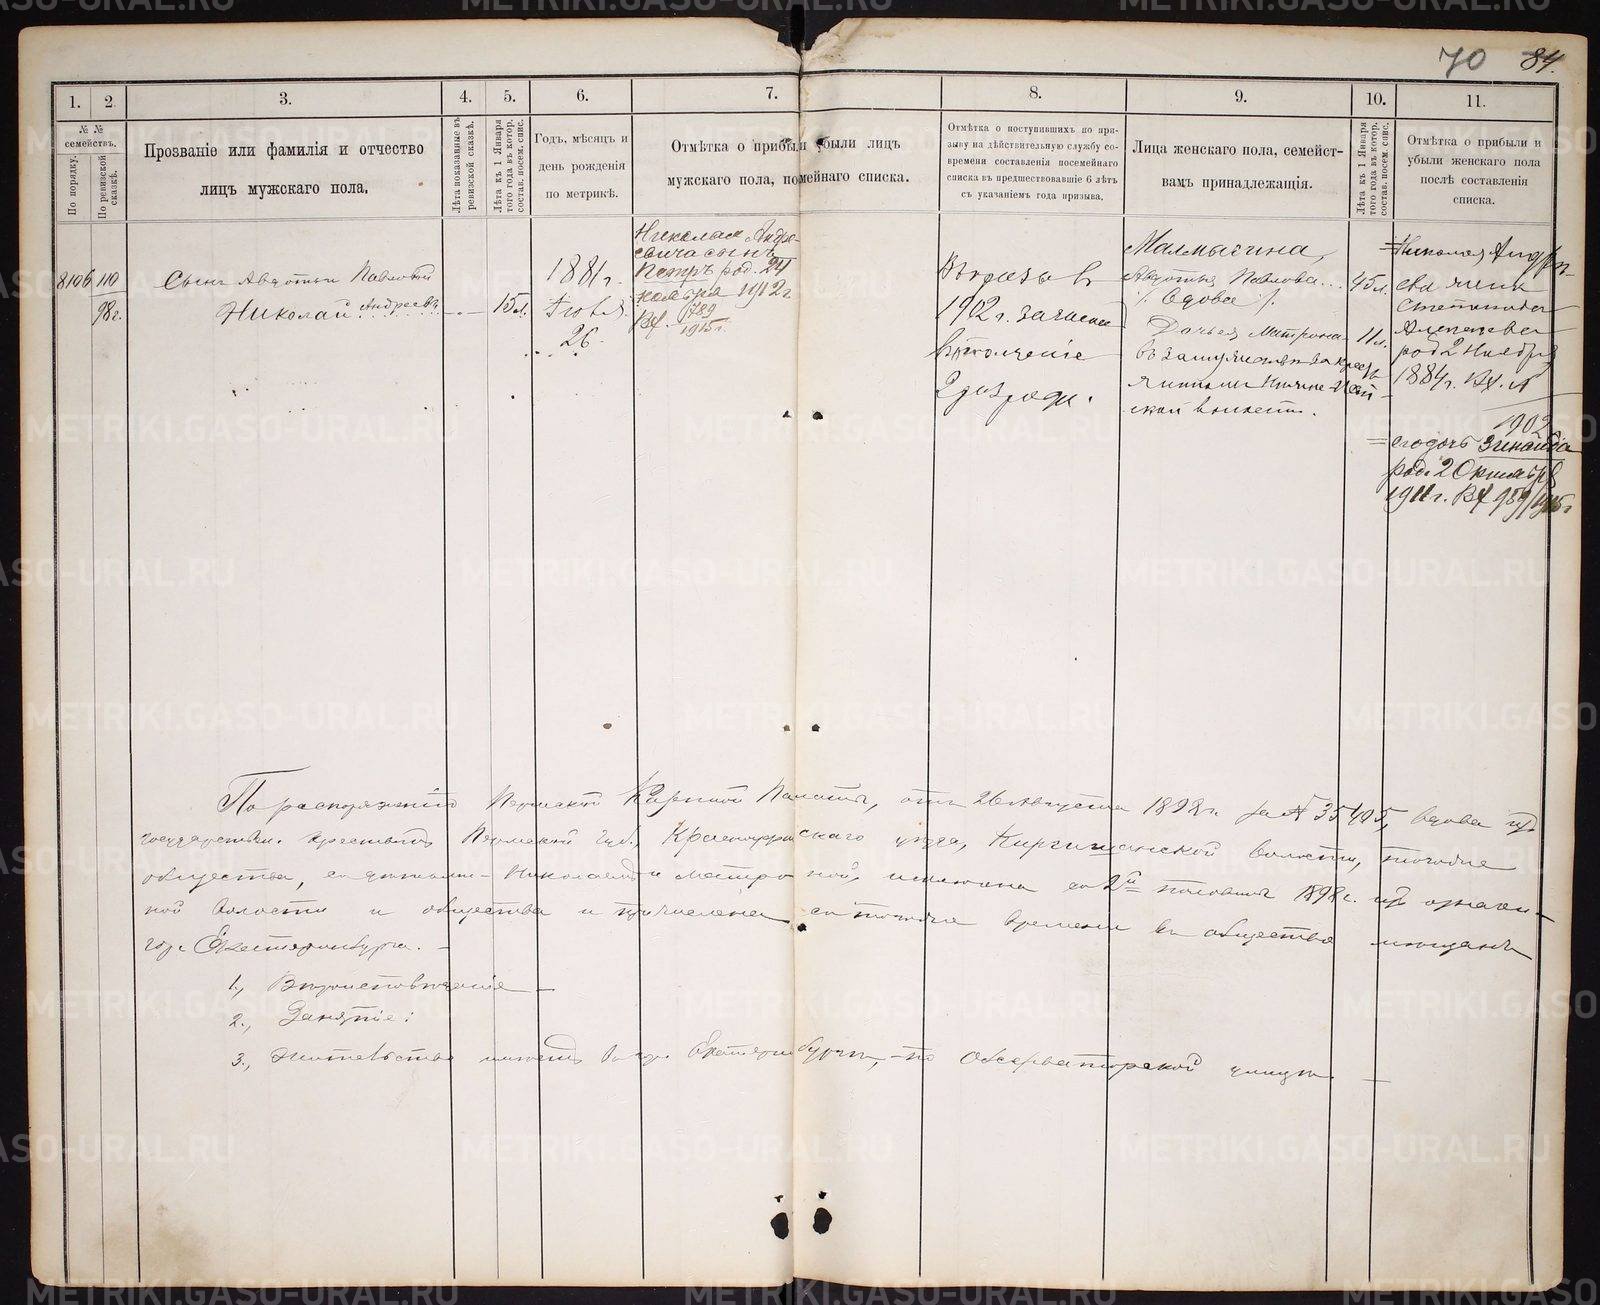 70 84.
1. 2 3. 4. 5. 6. 7. 8. 9. 10. 11.
№ №
семействъ.
По порядку.
По ревизской
сказкѣ.
Прозваніе или фамилія и отчество
лицъ мужскаго пола.
Лѣта показанные въ
ревизской сказкѣ.
Лѣта къ 1 Января
того года въ котор.
состав. посем. спис.
Годъ, мѣсяцъ и
день рожденія
по метрикѣ.
Отмѣтка о прибыли убыли лицъ
мужскаго пола, помейнаго списка.
Отмѣтка о поступившихъ по при-
зыву на дѣйствительную службу со-
времени составленія посемейнаго
списка въ предшествовавшіе 6 лѣтъ
съ указаніемъ года призыва.
Лица женскаго пола, семейст-
вамъ принадлежащія.
Лѣта къ 1 Января
того года въ котор.
состав. посем. спис.
Отмѣтка о прибыли и
убыли женскаго пола
послѣ составленія
списка.
110
98г.
Сынъ Авдотьи Павловой
Николай Андреевъ
15л.
1881г.
26
Николая Андре-
евича сынъ
Петръ род. 24
1912г.
Вх. 789
1915г.
Въ призывъ
1902г. зачисленъ
въ ополченіе
2 разряда.
Малмыгина,
Авдотья Павлова... 45л.
/. Вдова ./
Дочь ея Матрона 11л.
въ замужествѣ за крест
волости.
Николая Андре-
евича жена
Степанида
Алексѣева
род. 2 Ноября
1884г. Вх. №
1902
его дочь Зинаида
род. 2 Октября
1911г. Вх 959/1915г
По распоряженію Пермской Казенной Палаты, отъ 26 Августа 1898г. за № 35405, вдова изъ
государствен. крестьянъ Пермской губ., Красноуфимскаго уѣзда, Киргишанской волости, того же
общества, съ дѣтьми - Николаемъ и Матроной, исключена со 2й половины 1898г. изъ означен-
ной волости и общества и причислена съ того же времени въ общество мѣщанъ
гор. Екатеринбурга. -
1., Вѣроисповѣданіе -
2., Занятіе:
3., Жительство имѣетъ въ гор. Екатеринбургѣ, - по Обсерваторской улицѣ. -